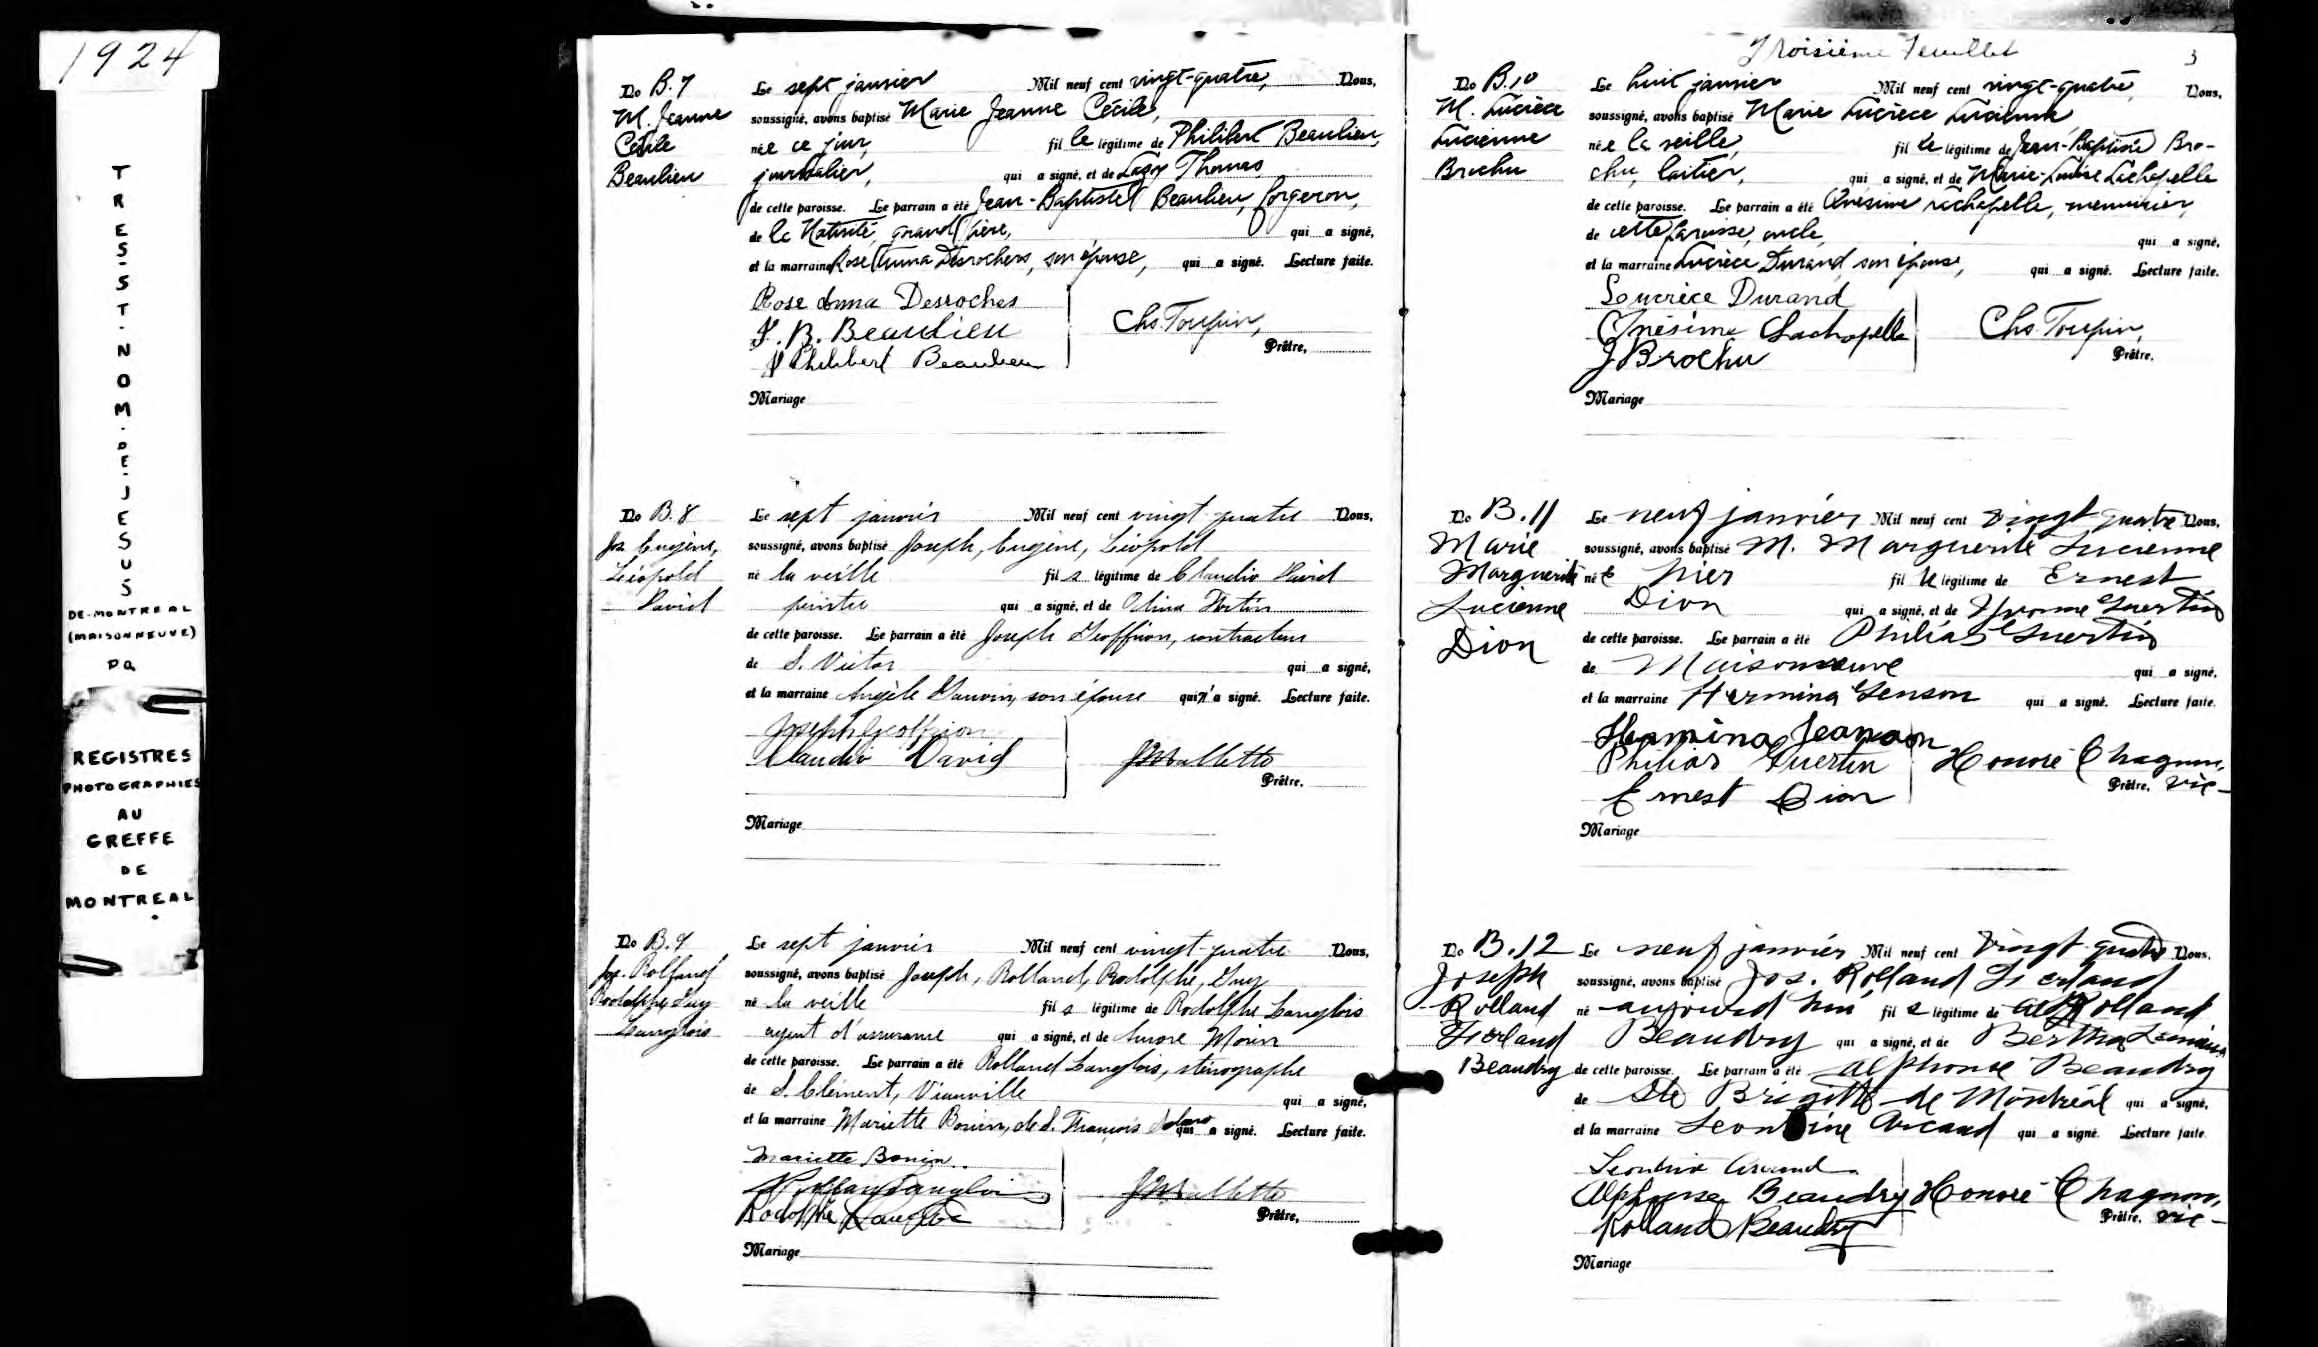 1924
TRES-ST-NOM-DE-JESUS
DE-MONTREAL
(MAISONNEUVE)
PQ
REGISTRES
PHOTOGRAPHIES
AU
GREFFE
DE
MONTREAL
No B.7
M. Jeanne
Cécile
Beaulieu
Le sept janvier Mil neuf cent vingt-quatre, Nous,
soussigné, avons baptisé Marie Jeanne Cécile,
née ce jour, fille légitime de Philibert Beaulieu,
journalier, qui a signé, et de Thomas
de cette paroisse. Le parrain a été Jean-Baptiste Beaulieu, forgeron,
de la Nativité, grand père, qui a signé,
et la marraine Rose Anna Desrochers, son épouse, qui a signé. Lecture faite.
Rose Anna Desroches
J. B. Beaulieu
J Philibert Beaulieu
Chs. Toupin,
Prêtre,
Mariage
No B.8
Jos. Eugène,
Léopold
David
Le sept janvier Mil neuf cent vingt quatre Nous,
soussigné, avons baptisé Joseph, Eugène, Léopold
né la veille fils légitime de Claudio David
peintre qui a signé, et de Fortin
de cette paroisse. Le parrain a été Joseph Geoffrion, contracteur
de S. Victor qui a signé,
et la marraine Angèle Dauvin, son épouse qui n'a signé. Lecture faite.
Joseph Geoffrion
Claudio David
Prêtre.
Mariage
No B.9
Jos. Rolland
Rodolphe Guy
Langlois
Le sept janvier Mil neuf cent vingt-quatre Nous,
soussigné, avons baptisé Joseph, Rolland, Rodolphe, Guy
né la veille fils légitime de Rodolphe Langlois
agent d'assurance qui a signé, et de Aurore Morin
de cette paroisse. Le parrain a été Rolland Langlois, sténographe
de S. Clément, Viauville qui a signé,
et la marraine Mariette Bonin, de S. François Solano qui a signé. Lecture faite.
Mariette Bonin
Rolland Langlois
Rodolphe Langlois
Prêtre,
Mariage
Troisième feuillet
3
No B.10
M. Lucrèce
Lucienne
Brochu
Le huit janvier Mil neuf cent vingt-quatre, Nous,
soussigné, avons baptisé Marie Lucrèce Lucienne
née la veille, fille légitime de Jean-Baptiste Bro-
chu, laitier, qui a signé, et de Marie-Louise Lachapelle
de cette paroisse. Le parrain a été Onésime Lachapelle, menuisier,
de cette paroisse, oncle, qui a signé,
et la marraine Lucrèce Durand, son épouse, qui a signé. Lecture faite.
Loucrèce Durand
Onésime Lachapelle
J Brochu
Chs. Toupin,
Prêtre.
Mariage
No B.11
Marie
Marguerite
Lucienne
Dion
Le neuf janvier Mil neuf cent vingt quatre Nous,
soussigné, avons baptisé M. Marguerite Lucienne
née hier fille légitime de Ernest
Dion qui a signé, et de Yvonne Guertin
de cette paroisse. Le parrain a été Philias Guertin
de Maisonneuve qui a signé,
et la marraine Hermina Jenson qui a signé. Lecture faite.
Hermina Jeanson
Philias Guertin
Ernest Dion
Honoré Chagnon,
Prêtre. vic-
Mariage
No B.12
Joseph
Rolland
Fierland
Beaudry
Le neuf janvier Mil neuf cent vingt-quatre Nous,
soussigné, avons baptisé Jos. Rolland Fierland
né aujourd'hui fils légitime de Rolland
Beaudry qui a signé, et de Bertha
de cette paroisse. Le parrain a été Alphonse Beaudry
de Ste Brigitte de Montréal qui a signé,
et la marraine Leontine Arcand qui a signé. Lecture faite
Leontine Arcand
Alphonse Beaudry
Rolland Beaudry
Honoré Chagnon,
Prêtre. vic-
Mariage